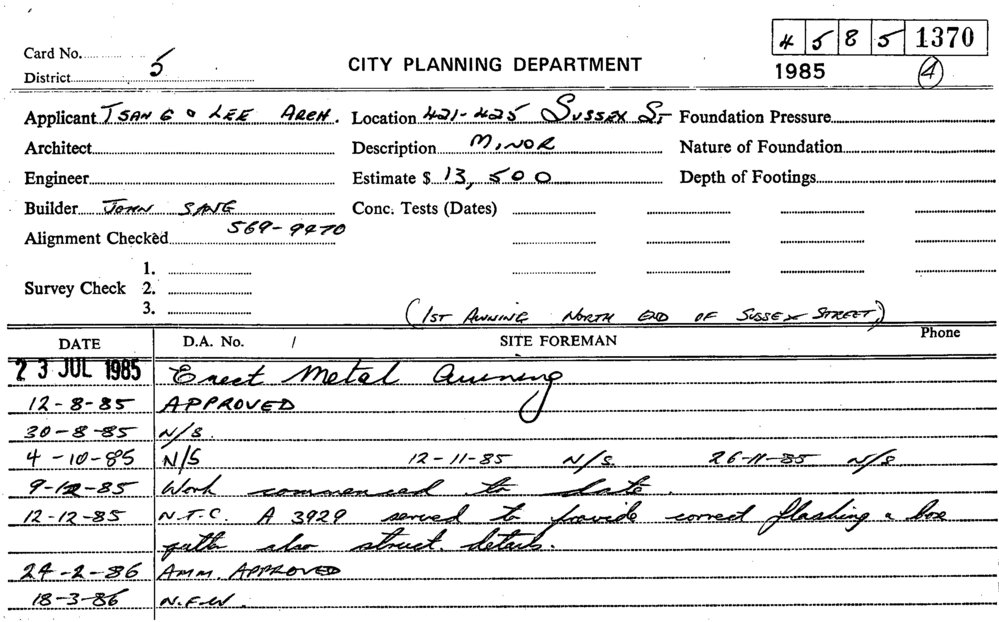 4 5 8 5 1370
Card No.
CITY PLANNING DEPARTMENT
1985 4
District 5
Applicant TSANG & LEE ARCH. Location 421-425 SUSSEX ST Foundation Pressure
Architect Description MINOR Nature of Foundation
Engineer Estimate $ 13,500 Depth of Footings
Builder JOHN SANG Conc. Tests (Dates)
Alignment Checked 569-9470
1.
Survey Check 2.
3.
(1ST AWNING NORTH END OF SUSSEX STREET)
DATE D.A. No. / SITE FOREMAN Phone
23 JUL 1985 Erect Metal Awning
12-8-85 APPROVED
30-8-85 N/S.
4-10-85 N/S 12-11-85 N/S. 26-11-85 N/S.
9-12-85 Work commenced to date.
12-12-85 N.T.C. A 3929 served to provide correct flashing & box
gutter also struct. details.
24-2-86 AMM. APPROVED
18-3-86 N.F.W.